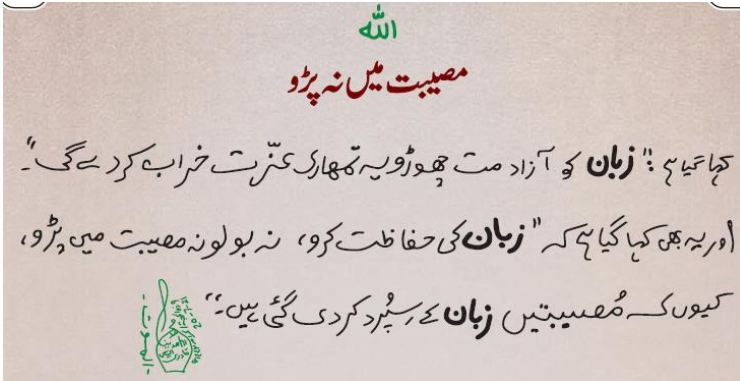 اللہ
مصیبت میں نہ پڑو
کہا گیا ہے: "زبان کو آزاد مت چھوڑو یہ تمھاری عزّت خراب کر دے گی"۔
اور یہ بھی کہا گیا ہے کہ "زبان کی حفاظت کرو، نہ بولو نہ مصیبت میں پڑو،
کیوں کہ مُصیبتیں زبان کے سپُرد کر دی گئی ہیں۔"